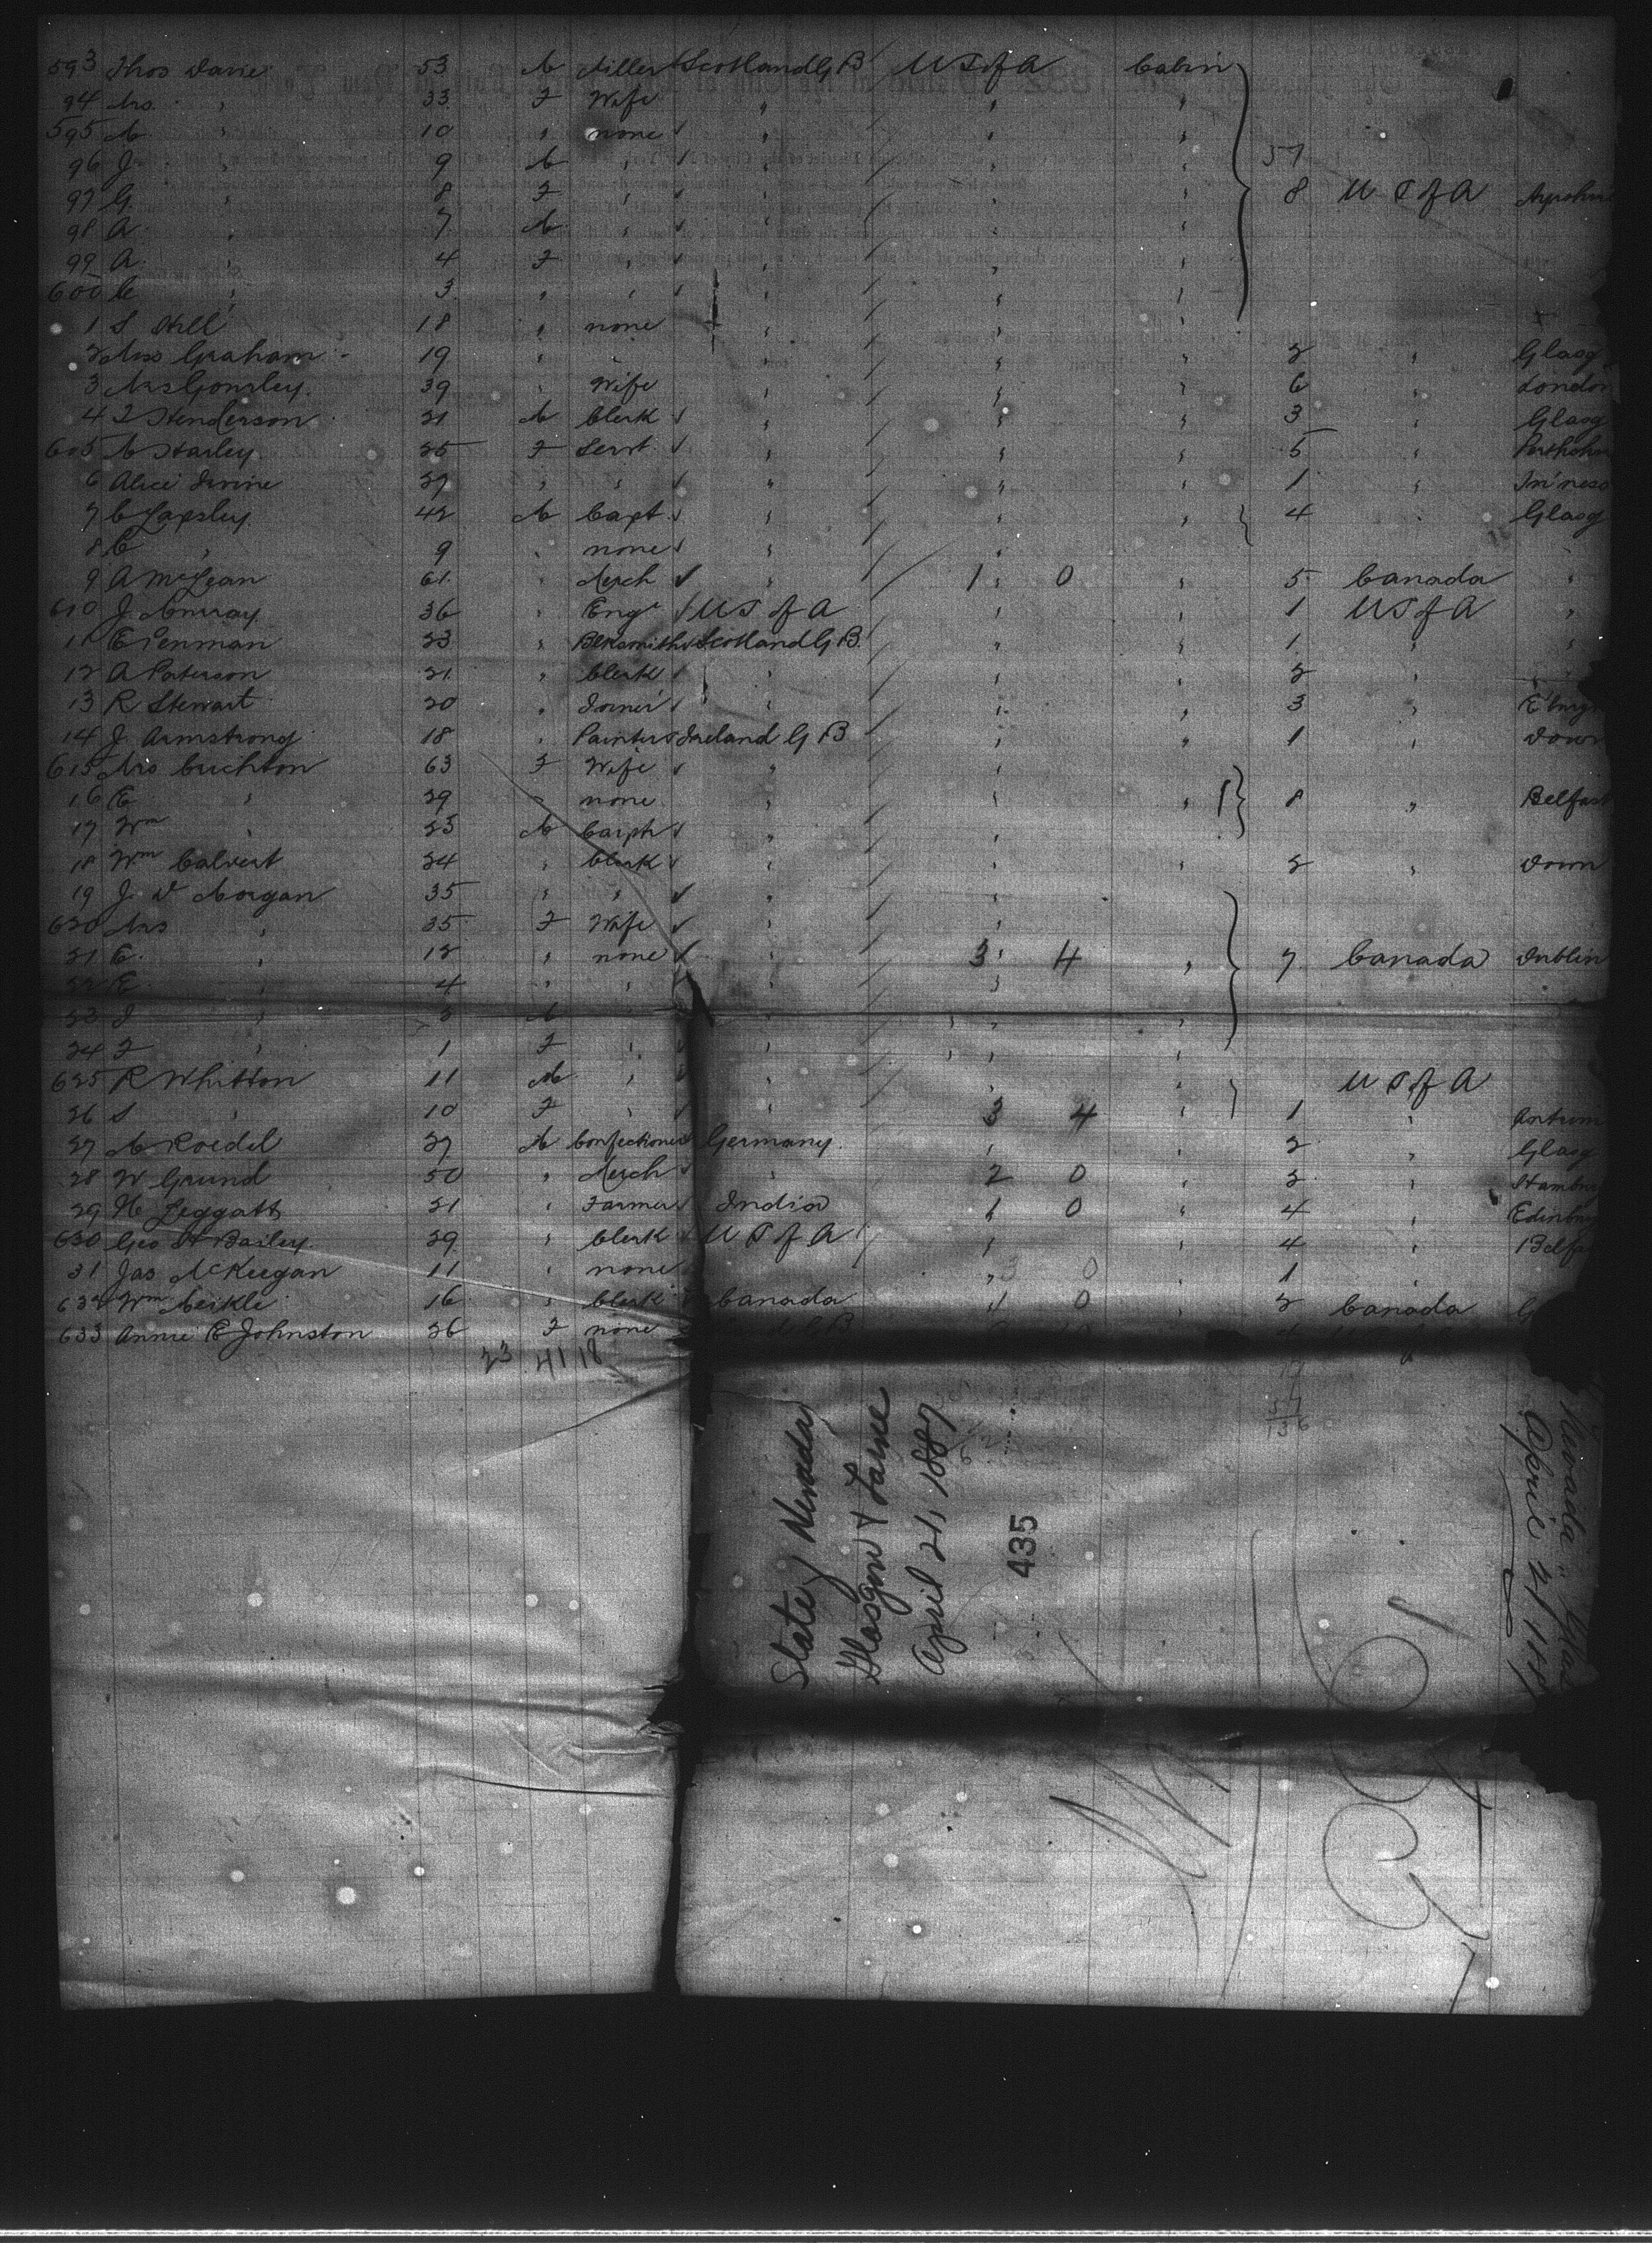 593 Thos Davie 53 M Miller Scotland G B U S of A Cabin
94 Mrs " 33 F Wife " " "
595 M " 10 " none " " "
96 J " 9 M " " " " 57
97 G " 8 F " " " " 8 U S of A
98 A " 7 M " " " "
99 A " 4 F " " " "
600 C " 3 " " " " "
1 S Hill 18 " none " " "
2 Miss Graham 19 " " " " " 2 " Glasg
3 Mrs Gonsley 39 " Wife " " " 6 " London
4 J Henderson 21 M Clerk " " " 3 " Glasg
605 M Harley 25 F Servt " " " 5 "
6 Alice Irvine 27 " " " " " 1 " In'ness
7 C Lapsley 42 M Capt " " " 4 " Glasg
8 C " 9 " none " "
9 A McLean 61 " Merch " 1 0 " 5 Canada "
610 J Murray 36 " Engr U S of A " " 1 U S of A "
11 E Penman 23 " Blksmith Scotland G B " " 1 " "
12 A Paterson 21 " Clerk " " " 2 "
13 R Stewart 20 " Joiner " " " 3 " E'burg
14 J Armstrong 18 " Painter Ireland G B " " 1 " Down
615 Mrs Crichton 63 F Wife " "
16 E " 29 " none " " " 8 " Belfast
17 Wm " 23 M Carptr " "
18 Wm Calvert 24 " Clerk " " " 2 " Down
19 J D Morgan 35 " " " "
620 Mrs " 35 F Wife " "
21 E " 12 " none " 3 4 " 7 Canada Dublin
22 E " 4 " " "
23 J " M " " "
24 F " 1 F " " " "
625 R Whitton 11 M " " " " U S of A
26 S " 10 F " " 3 4 " 1 " Antrim
27 M Roedel 27 M Confectioner Germany " " 2 " Glasg
28 W Grund 50 " Merch " 2 0 " 2 " Hambur
29 H Leggatt 21 " Farmer India 1 0 " 4 " Edinbur
630 Geo H Bailey 29 " Clerk U S of A " " 4 " Belfa
31 Jas McKeegan 11 " none " 3 0 " 1 "
632 Wm Meikle 16 " Clerk Canada 1 0 " 2 Canada G
633 Annie E Johnston 26 F none
23 41 18
57
136
State of Nevada
Glasgow & Larne
April 21, 1887
435
Nevada
April 21 1887